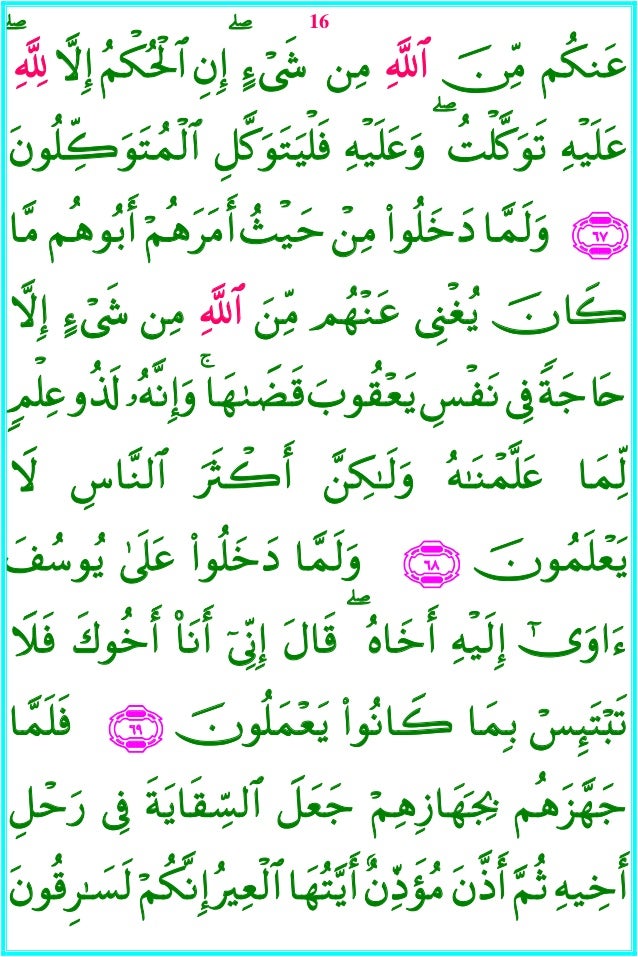 16
عَنكُم مِّنَ ٱللَّهِ مِن شَىْءٍ ۖ إِنِ ٱلْحُكْمُ إِلَّا لِلَّهِ ۖ
عَلَيْهِ تَوَكَّلْتُ ۖ وَعَلَيْهِ فَلْيَتَوَكَّلِ ٱلْمُتَوَكِّلُونَ
﴿٦٧﴾ وَلَمَّا دَخَلُوا۟ مِنْ حَيْثُ أَمَرَهُمْ أَبُوهُم مَّا
كَانَ يُغْنِى عَنْهُم مِّنَ ٱللَّهِ مِن شَىْءٍ إِلَّا
حَاجَةً فِى نَفْسِ يَعْقُوبَ قَضَىٰهَا ۚ وَإِنَّهُۥ لَذُو عِلْمٍ
لِّمَا عَلَّمْنَـٰهُ وَلَـٰكِنَّ أَكْثَرَ ٱلنَّاسِ لَا
يَعْلَمُونَ ﴿٦٨﴾ وَلَمَّا دَخَلُوا۟ عَلَىٰ يُوسُفَ
ءَاوَىٰٓ إِلَيْهِ أَخَاهُ ۖ قَالَ إِنِّىٓ أَنَا۠ أَخُوكَ فَلَا
تَبْتَئِسْ بِمَا كَانُوا۟ يَعْمَلُونَ ﴿٦٩﴾ فَلَمَّا
جَهَّزَهُم بِجَهَازِهِمْ جَعَلَ ٱلسِّقَايَةَ فِى رَحْلِ
أَخِيهِ ثُمَّ أَذَّنَ مُؤَذِّنٌ أَيَّتُهَا ٱلْعِيرُ إِنَّكُمْ لَسَـٰرِقُونَ